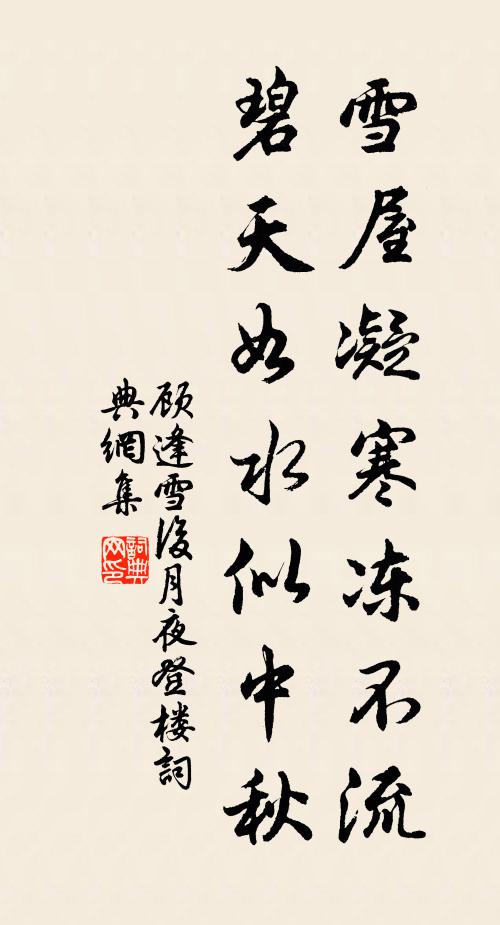 雪屋凝寒冻不流
碧天如水似中秋
顾逢雪後月夜登楼詞
典網集
詞典网印